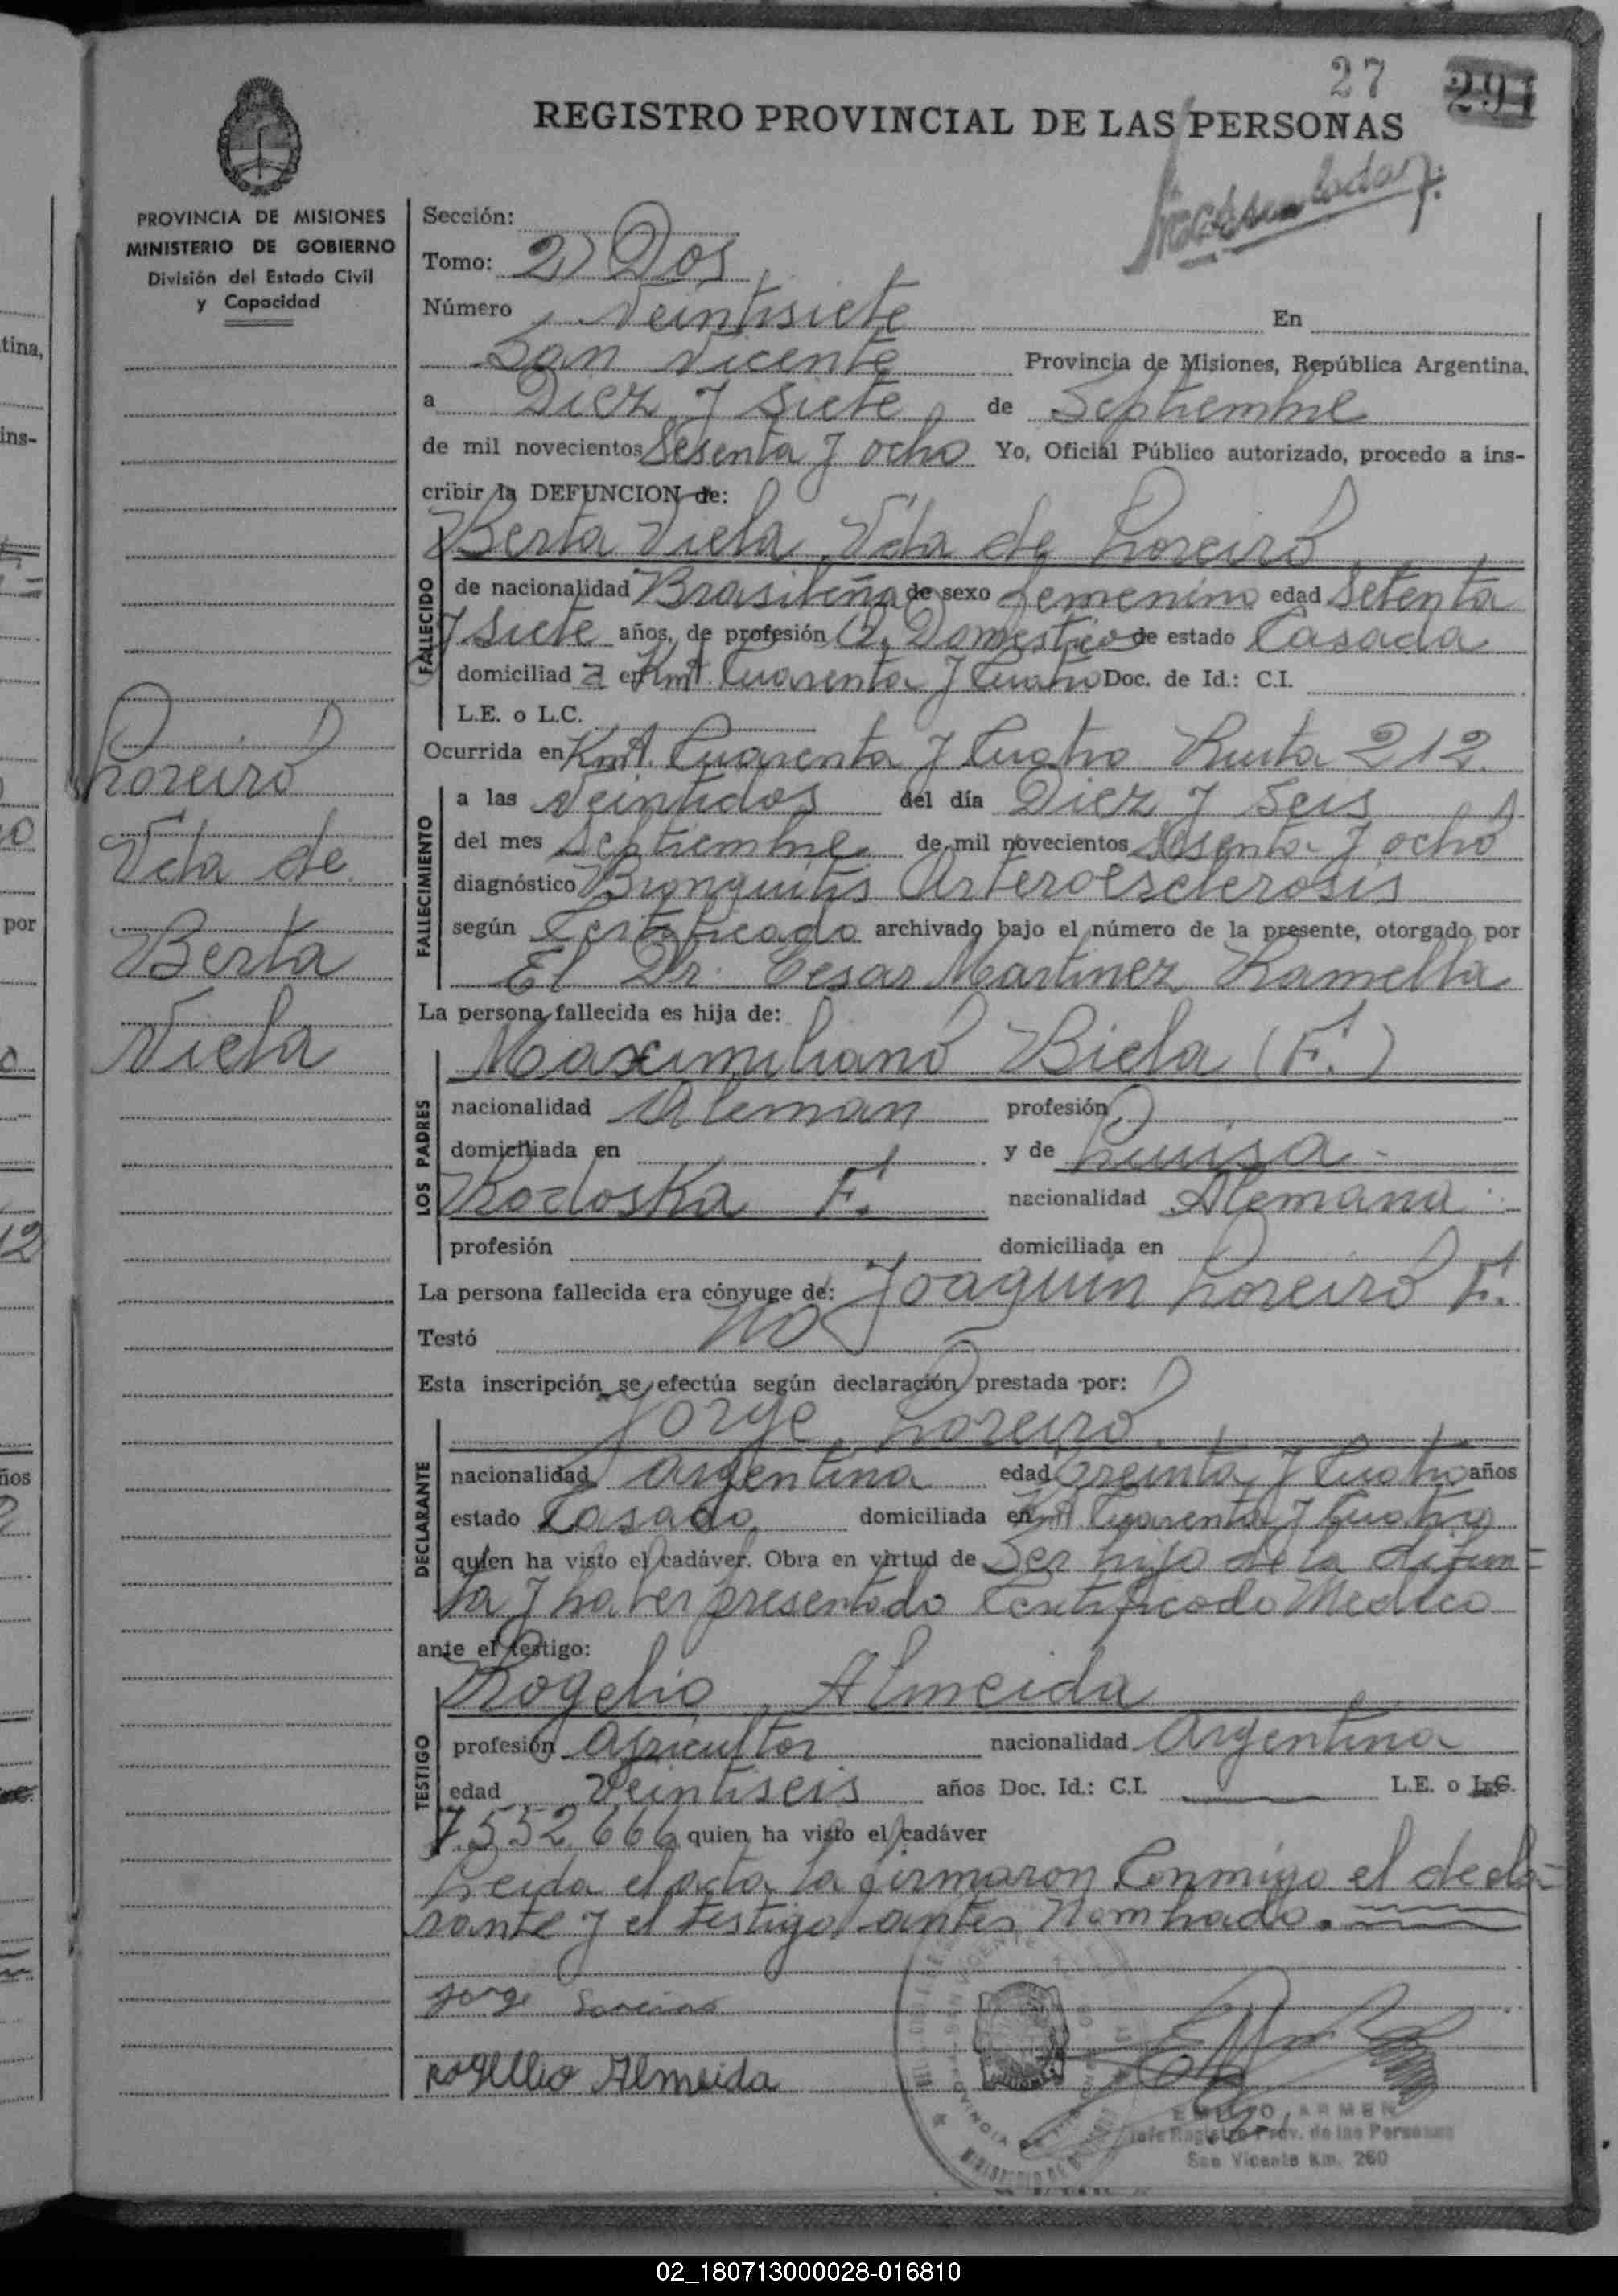 27 291
REGISTRO PROVINCIAL DE LAS PERSONAS
PROVINCIA DE MISIONES
MINISTERIO DE GOBIERNO
División del Estado Civil
y Capacidad
Sección:
Tomo: 2) Dos
Número Veintisiete En
San Vicente Provincia de Misiones, República Argentina,
a Diez y Siete de Septiembre
de mil novecientos Sesenta y ocho Yo, Oficial Público autorizado, procedo a ins-
cribir la DEFUNCION de:
Berta Viela Vda de Loreiro
FALLECIDO
de nacionalidad Brasileña de sexo femenino edad Setenta
y Siete años, de profesión Q. Domestico de estado Casada
domiciliad a en Kmt. Cuarenta y Cuatro Doc. de Id.: C.I.
L.E. o L.C.
Ocurrida en Kmt. Cuarenta y Cuatro Ruta 212
FALLECIMIENTO
a las Veintidos del día Diez y Seis
del mes Septiembre de mil novecientos Sesenta y ocho
diagnóstico Bronquitis Arteroesclerosis
según Certificado archivado bajo el número de la presente, otorgado por
El Dr. Cesar Martinez Ramella
La persona fallecida es hija de:
Maximiliano Biela (F.)
LOS PADRES
nacionalidad Aleman profesión
domiciliada en y de Luisa
Kodoska F. nacionalidad Alemana
profesión domiciliada en
La persona fallecida era cónyuge de: Joaquin Loreiro F.
Testó No
Esta inscripción se efectúa según declaración prestada por:
Jorge Loreiro.
DECLARANTE
nacionalidad Argentina edad Treinta y Cuatro años
estado Casado domiciliada en Kmt Cuarenta y Cuatro
quien ha visto el cadáver. Obra en virtud de Ser hijo de la difun=
ta y haver presentado Certificado Medico
ante el testigo:
Rogelio Almeida
TESTIGO
profesión Agricultor nacionalidad Argentina
edad Veintiseis años Doc. Id.: C.I. L.E. o L.C.
7.552.666 quien ha visto el cadáver
Leida el acta la firmaron Conmigo el decla-
rante y el testigo antes Nombrado.
Jorge Loreiro
Rogellio Almeida
EMILIO ARMEN
Jefe Registro Prov. de las Personas
San Vicente Km. 260
Loreiro
Vda de
Berta
Viela
02_180713000028-016810